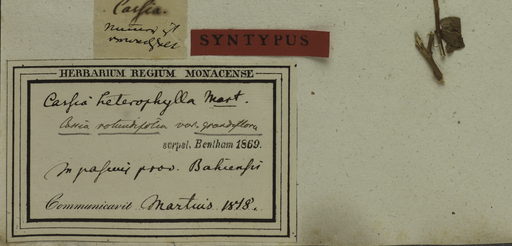 Cassia.
SYNTYPUS
HERBARIUM REGIUM MONACENSE
Cassia heterophylla Mart.
Cassia rotundifolia var. grandiflora
scrpsi. Bentham 1869.
In pascuis prov. Bahiensis
Communicavit Martius 1848.